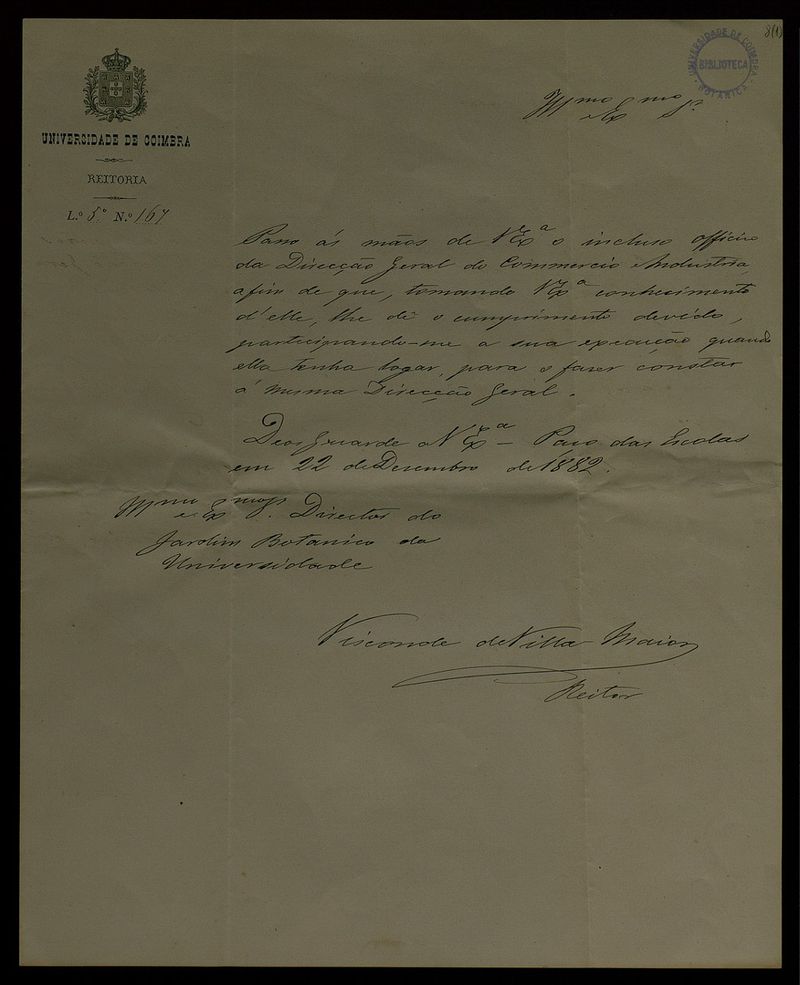 8(1)
UNIVERSIDADE DE COIMBRA
BIBLIOTECA
BOTANICA
Illmo e Exmo Sr
UNIVERSIDADE DE COIMBRA
REITORIA
L.º 5º N.º 167
Passo ás mãos de VExª o incluso officio
da Direcção Geral do Commercio e Industria,
afim de que, tomando VExª conhecimento
d'elle, lhe dê o cumprimento devido,
participando-me a sua execução quando
ella tenha logar, para o fazer constar
á mesma Direcção Geral.
Deos Guarde a VExª - Paço das Escolas
em 22 de Desembro de 1882.
Illmo e Exmo Sr. Director do
Jardim Botanico da
Universidade
Visconde de Villa Maior
Reitor